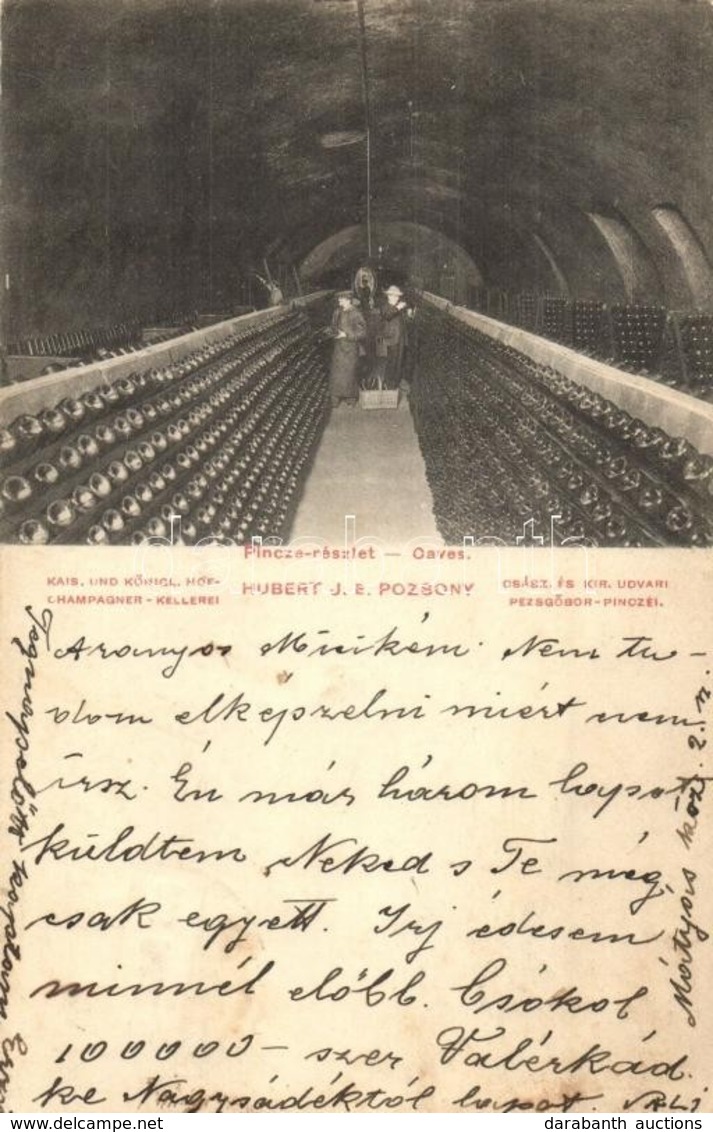 Pincze-részlet — Caves.
KAIS. UND KÖNIGL. HOF-
CHAMPAGNER-KELLEREI
HUBERT J. E. POZSONY
CSÁSZ. ÉS KIR. UDVARI
PEZSGŐBOR-PINCZÉI.
Aranyos Miczikém. Nem tu-
dom elképzelni miért nem
írsz. Én már három lapot
küldtem Neked s Te még
csak egyett. Irj édesem
minnél előbb. Csókol
100000 – szer Valérkád.
Tegnapelőtt kaptam
ke Nagysádéktól lapot. VALI
Mártyás 2.
darabanth
darabanth auctions